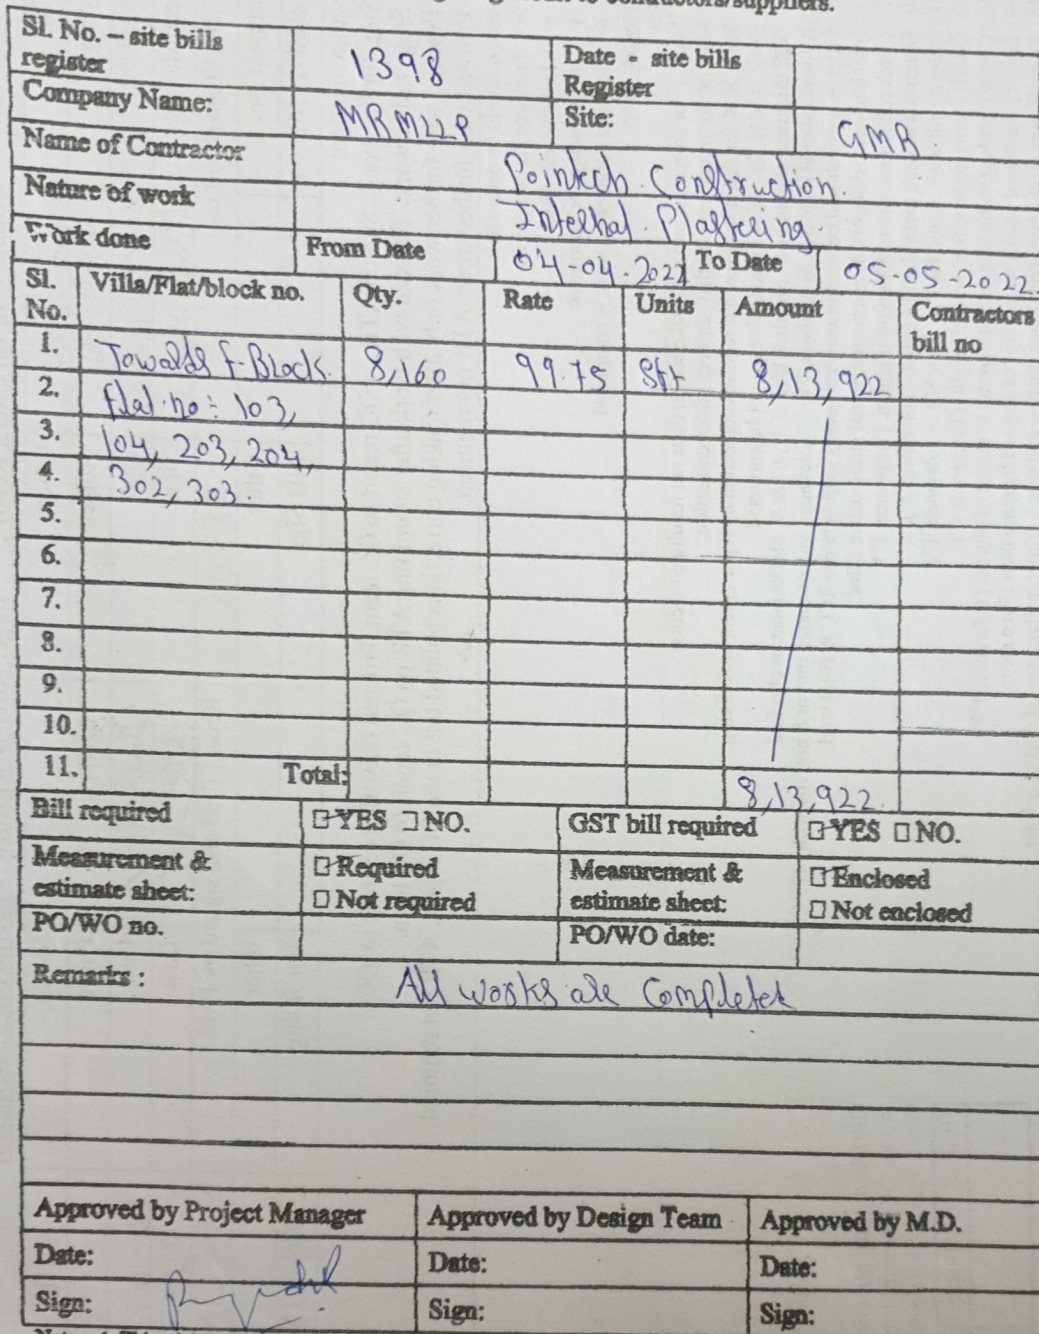 to contractors/suppliers.
Sl. No. – site bills register 1398 Date - site bills Register
Company Name: MRMLLP Site: GMR
Name of Contractor Pointech Construction.
Nature of work Internal Plastering.
Work done From Date 04-04-2022 To Date 05-05-2022.
Sl. No. Villa/Flat/block no. Qty. Rate Units Amount Contractors bill no
1. Towards F-Block. 8,160 99.75 Sft 8,13,922
2. flat.no: 103,
3. 104, 203, 204,
4. 302, 303.
5.
6.
7.
8.
9.
10.
11. Total: 8,13,922
Bill required YES NO. GST bill required YES NO.
Measurement & estimate sheet: Required Not required Measurement & estimate sheet: Enclosed Not enclosed
PO/WO no. PO/WO date:
Remarks : All works are Completed
Approved by Project Manager Approved by Design Team Approved by M.D.
Date: Date: Date:
Sign: Sign: Sign: